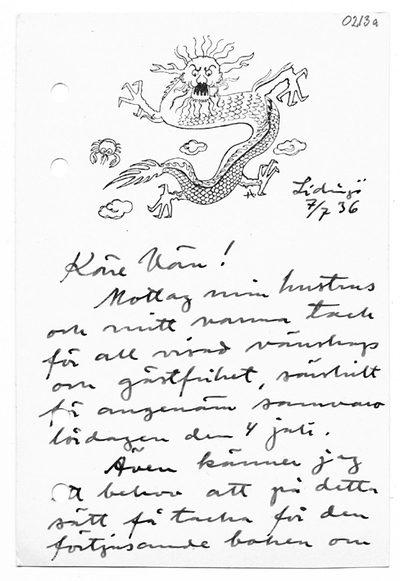 0213a
Lidingö
7/7 36
Käre Vän!
Mottag min hustrus
och mitt varma tack
för all visad vänskap
och gästfrihet, särskilt
för angenäm samvaro
lördagen den 4 juli.
Även känner jag
ett behov att på detta
sätt få tacka för den
förtjusande boken om